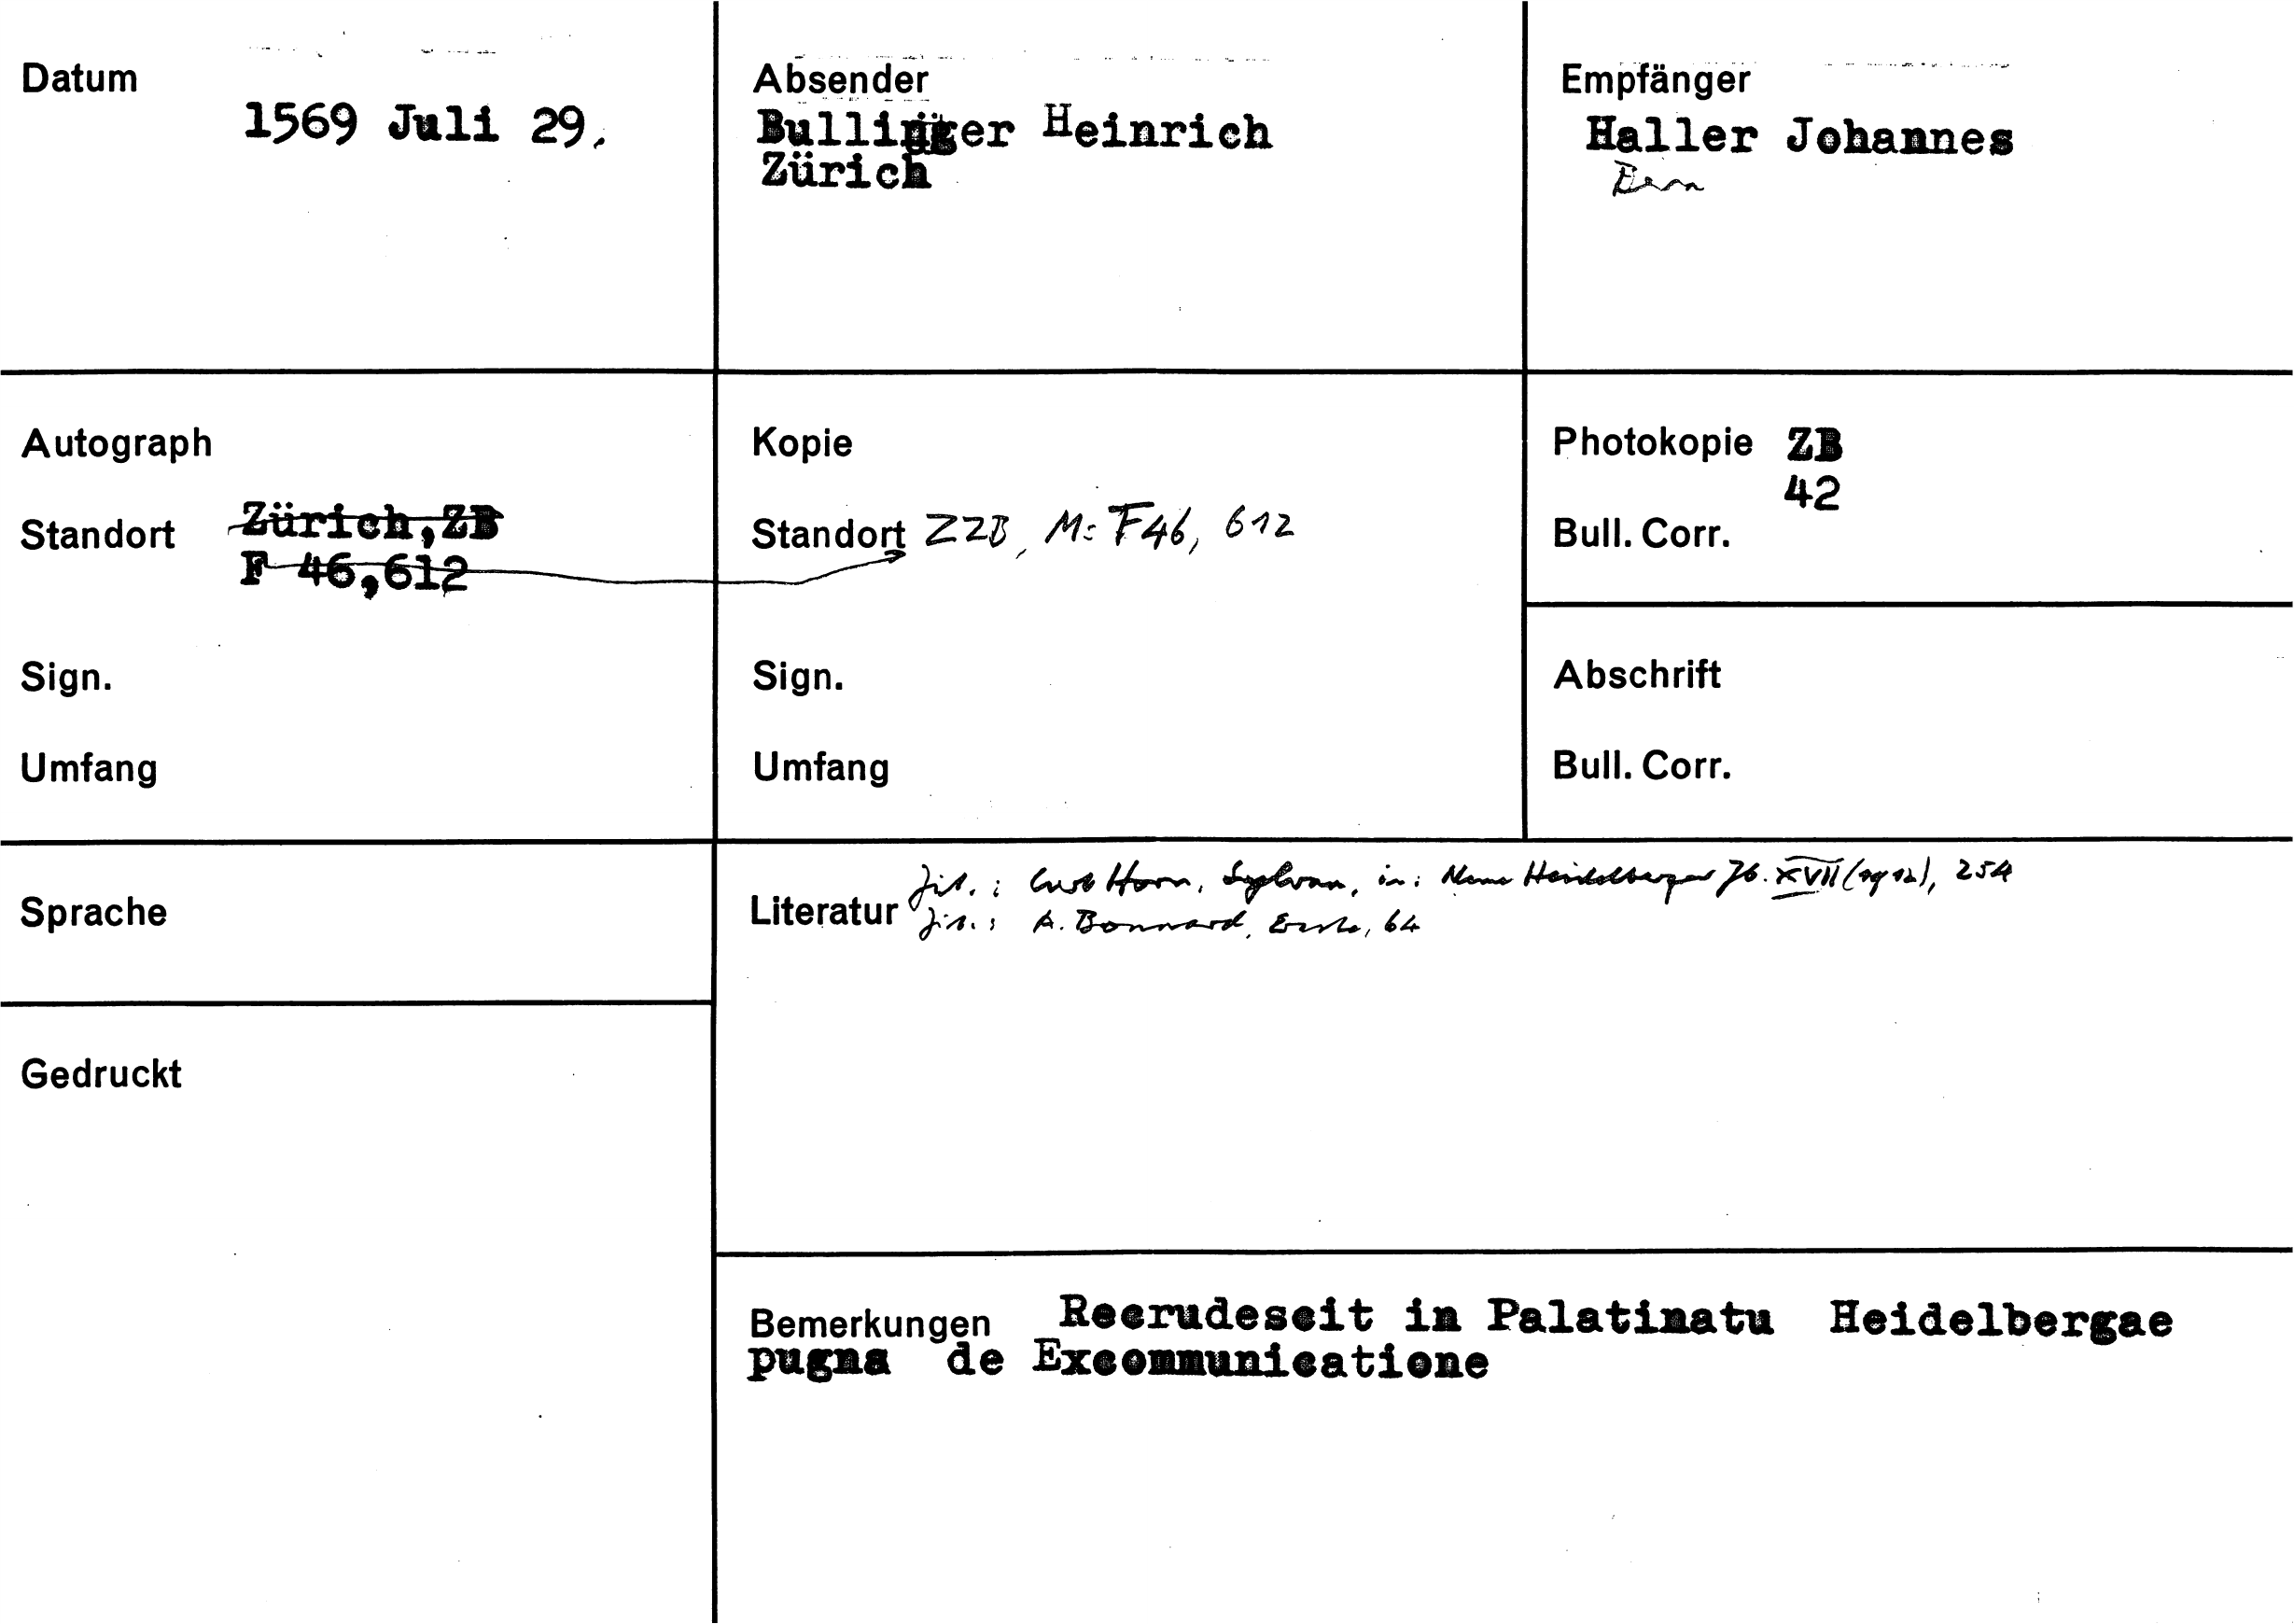 Datum
1569 Juli 29.
Absender
Bullinger Heinrich
Zürich
Empfänger
Haller Johannes
Bern
Autograph
Standort Zürich,ZB
F 46,612
Sign.
Umfang
Kopie
Standort ZZB, Ms F46, 612
Sign.
Umfang
Photokopie ZB
42
Bull. Corr.
Abschrift
Bull. Corr.
Sprache
Literatur Zit.: Curt Horn, Sylvan, in: Neue Heidelberger Jb. XVII (1912), 254
Zit.: A. Bonnard, Eraste, 64
Gedruckt
Bemerkungen Recrudescit in Palatinatu Heidelbergae
pugna de Excommunicatione